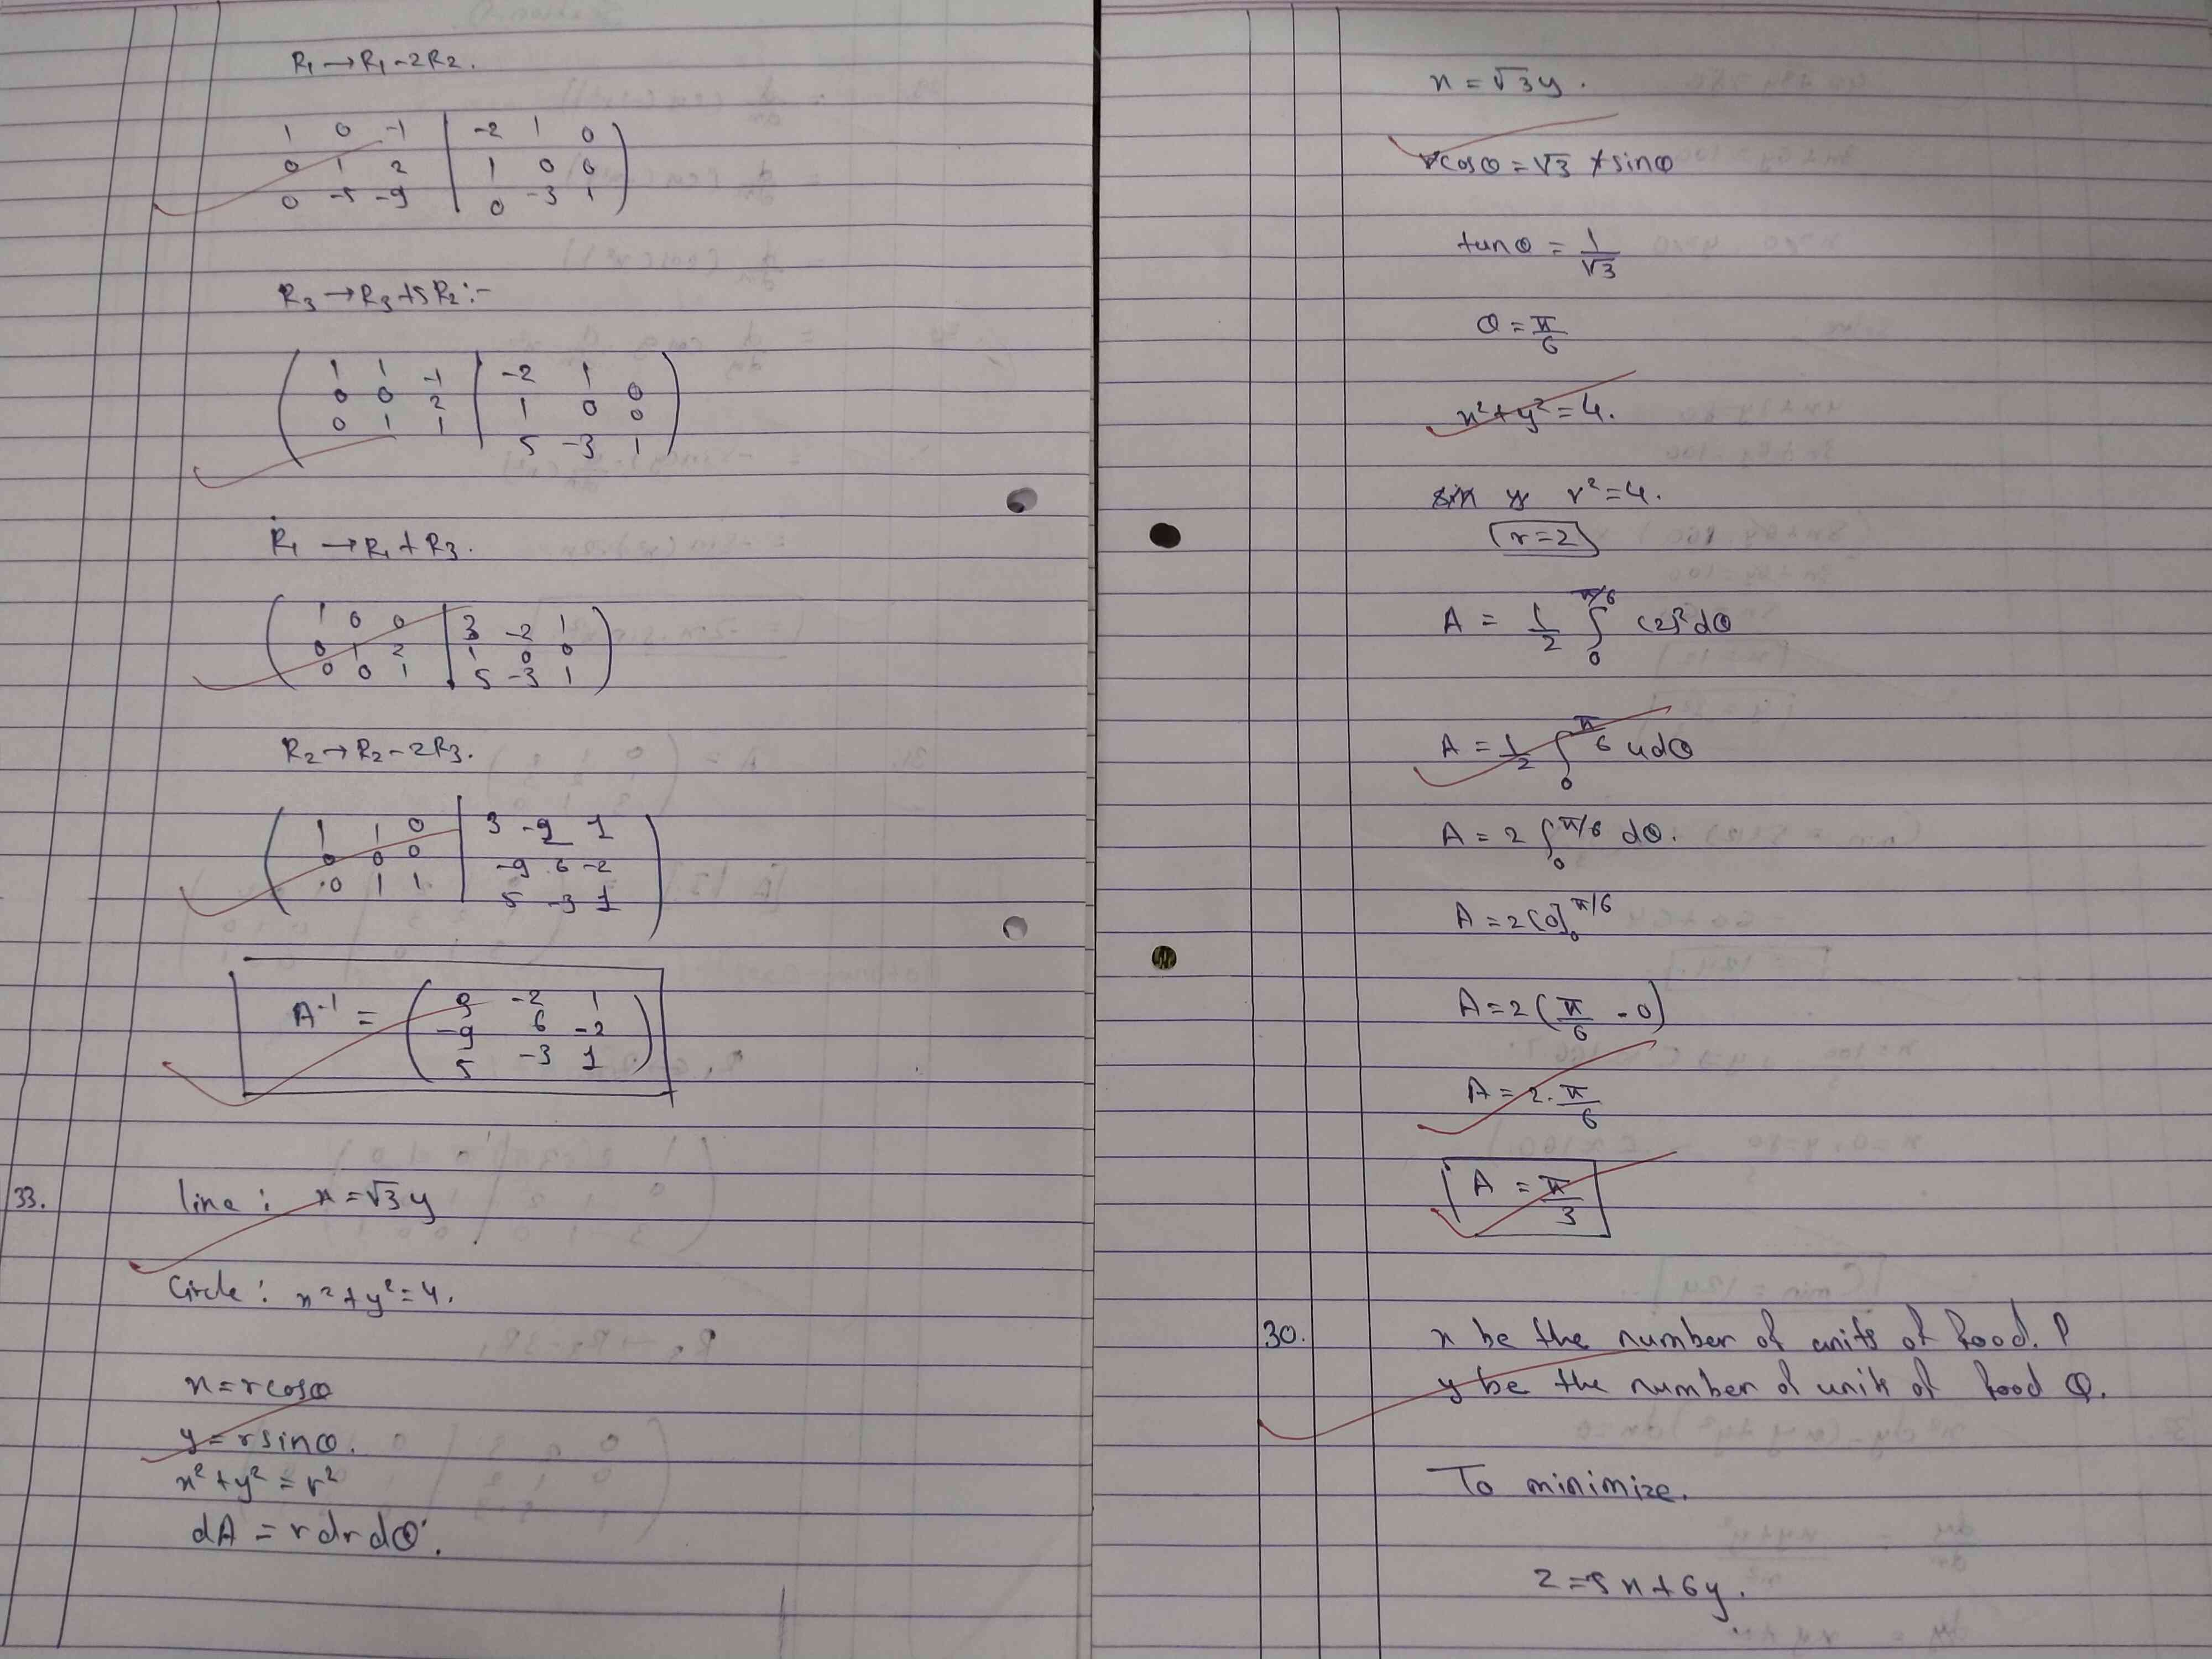 R₁ → R₁ - 2R₂.
1 0 -1 | -2 1 0
0 1 2 | 1 0 0
0 -5 -9 | 0 -3 1
R₃ → R₃ + 5R₂ :-
1 1 -1 | -2 1
0 0 2 | 1 0 0
0 1 1 | 5 -3 1
R₁ → R₁ + R₃.
1 0 0 | 3 -2 1
0 1 2 | 1 0 0
0 0 1 | 5 -3 1
R₂ → R₂ - 2R₃.
1 1 0 | 3 -2 1
0 0 0 | -9 6 -2
0 1 1 | 5 -3 1
A⁻¹ = ( -2 1
-9 6 -2
5 -3 1 )
33. line : x = √3 y
Circle : x² + y² = 4.
x = r cosθ
y = r sinθ.
x² + y² = r²
dA = r dr dθ.
x = √3 y.
r cosθ = √3 r sinθ
tanθ = 1/√3
θ = π/6
x² + y² = 4.
r² = 4.
r = 2
A = 1/2 ∫₀^π/6 (2)² dθ
A = 1/2 ∫₀^π/6 4 dθ
A = 2 ∫₀^π/6 dθ.
A = 2 [θ]₀^π/6
A = 2 (π/6 - 0)
A = 2 . π/6
A = π/3
30. x be the number of units of food. P
y be the number of units of food Q.
To minimize.
Z = 5x + 6y.